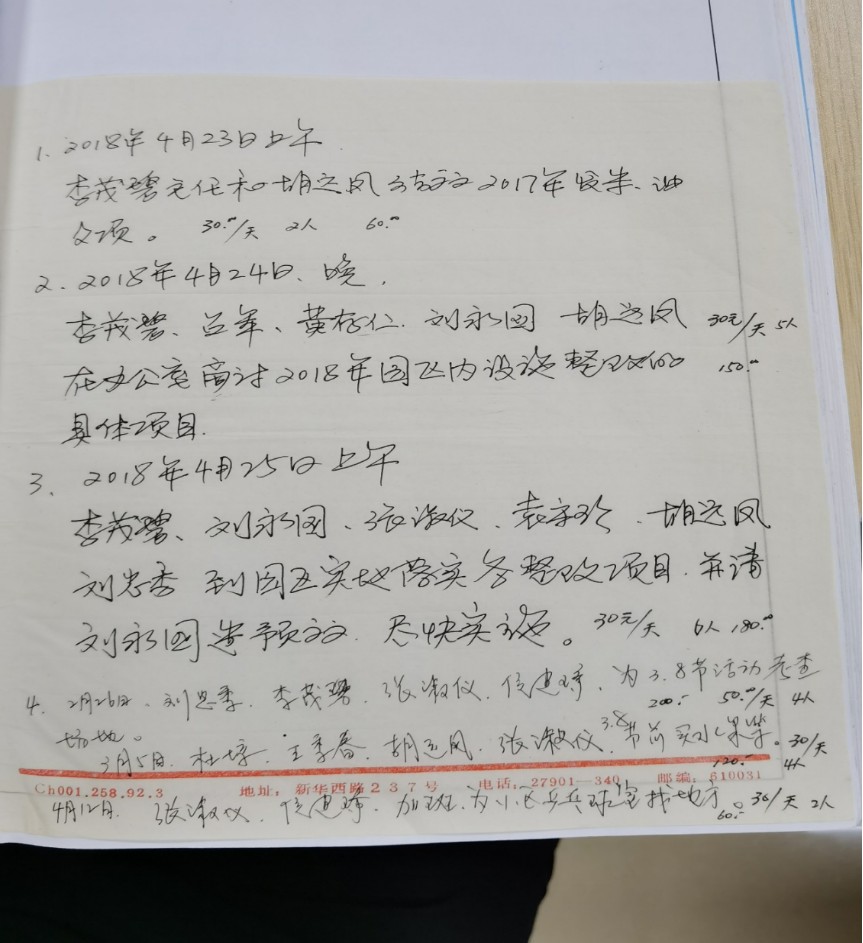 1. 2018年4月23日上午
李茂碧主任和胡远凤 2017年 
改项。 30.00/天 2人 60.00
2. 2018年4月24日、晚,
李茂碧、吕军、黄存仁. 刘永国 胡远凤 30元/天 5人
在办公室商讨2018年园区内设施整改的 150.00
具体项目.
3. 2018年4月25日上午
李茂碧、刘永国、张淑仪、袁 、胡远凤
刘忠季 到园区实地落实各整改项目. 并请
刘永国 预 . 尽快实施。 30元/天 6人 180.00
4. 2月26日. 刘忠季. 李茂碧. 张淑仪. 为3.8节活动考查
场地。 200.- 50.00/天 4人
3月5日. 杜 . 王季春. 胡远凤. 张淑仪. 3.8节前买水果等。 30/天
120.- 4人
Ch001.258.92.3 地址:新华西路237号 电话:27901—340 邮编:610031
4月12日. 张淑仪. 加班. 为小区乒乓球室找地方。 30/天 2人
60.-